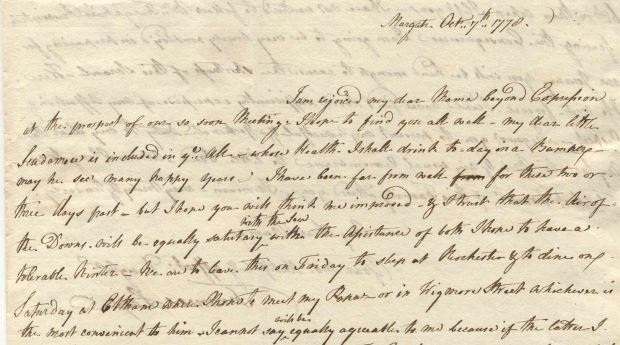 Margate Oct. 7th 1778.
I am rejoiced my dear Mama beyond Expression
at the prospect of our so soon Meeting I hope to find you all well – my dear little
is included in ye. All – whose Health I shall drink to-day in a Bumper –
may he see many happy years. I have been far from well from for these two or
three days past – but I hope you will think me improved – & I trust that the Air of
with the Sea
the Downs will be equally salutary with the Assistance of both I hope to have a
tolerable Winter – We are to leave this on Friday to sleep at Rochester & to dine on
Saturday at Eltham where I hope to meet my Papa or in Wigmore Street whichever is
will be
the most convenient to him – I cannot say equally agreeable to me because if the latter I